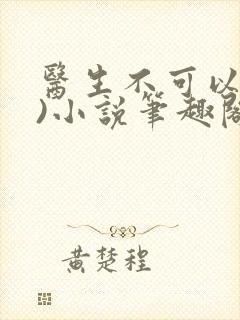 醫生不可以
)小說筆趣閣
黃楚程